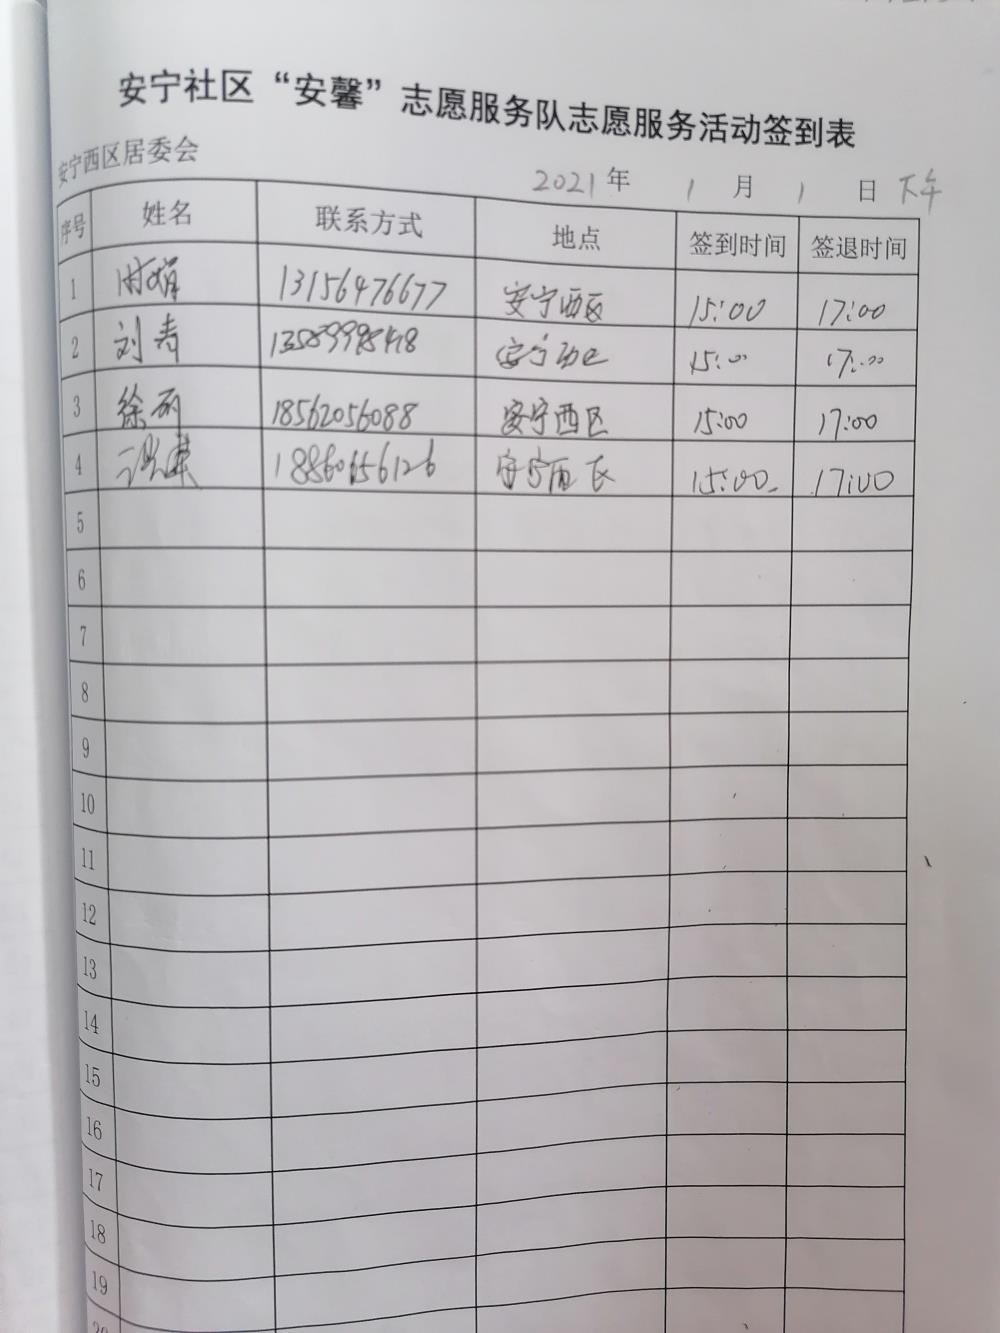 安宁社区“安馨”志愿服务队志愿服务活动签到表
安宁西区居委会
2021年 1月 1日 下午
序号 姓名 联系方式 地点 签到时间 签退时间
1 时娟 13156476677 安宁西区 15:00 17:00
2 刘青 安宁西区 15:00 17:00
3 徐丽 18562056088 安宁西区 15:00 17:00
4 18860656126 安宁西区 15:00 17:00
5
6
7
8
9
10
11
12
13
14
15
16
17
18
19
20